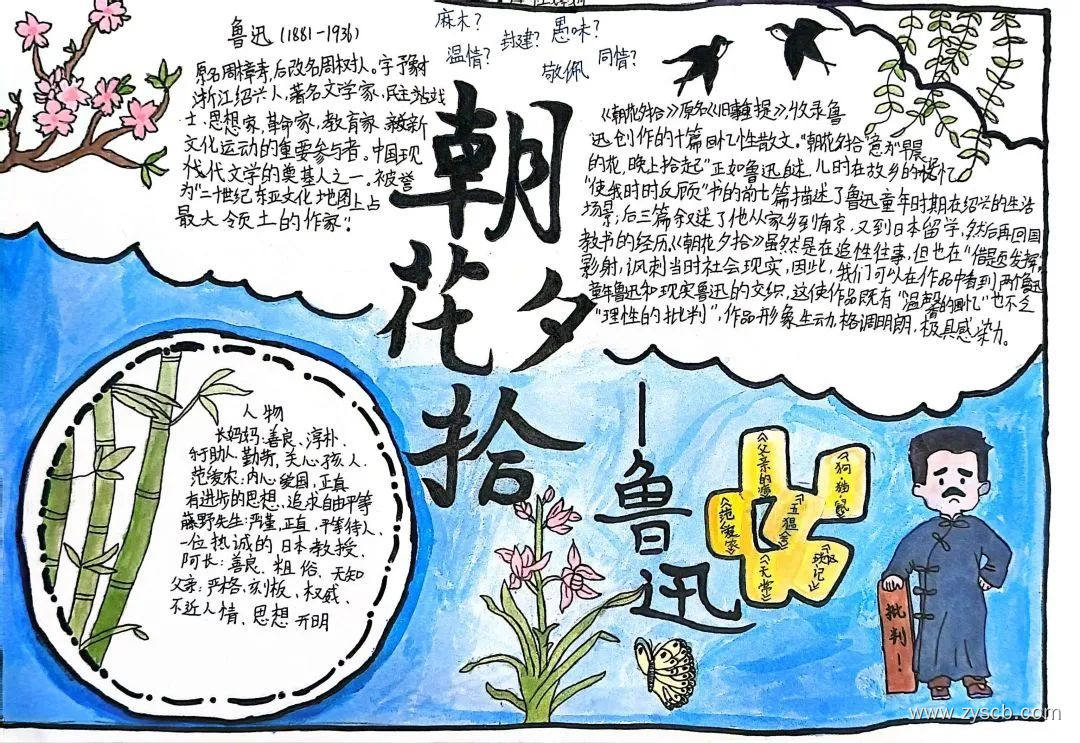 鲁迅(1881-1936)
原名周樟寿,后改名周树人。字予豫才
浙江绍兴人,著名文学家、民主
士、思想家,革命家,教育家、新
文化运动的重要参与者。中国现
代文学的奠基人之一。被誉
为“二十世纪东亚文化地图上占
最大领土的作家”
麻木?
温情?
封建?
愚味?
敬佩
同情?
朝花夕拾
—鲁迅
《朝花夕拾》原名《旧事重提》,收录鲁
迅创作的十篇回忆性散文。“朝花夕拾”意为“早晨
的花,晚上拾起”正如鲁迅自述,儿时在故乡的
“使我时时反顾”书的前七篇描述了鲁迅童年时期在绍兴的生活
场景,后三篇叙述了他从家乡到南京,又到日本留学,然后再回国
教书的经历,《朝花夕拾》虽然是在追性往事,但也在“借题发挥”
影射,讽刺当时社会现实,因此,我们可以在作品中看到两个鲁迅
童年鲁迅和现实鲁迅的交织,这使作品既有“温馨的回忆”也不乏
“理性的批判”,作品形象生动,格调明朗,极具感染力。
人物
长妈妈:善良、淳朴、
乐于助人、勤劳,关心孩人、
范爱农:内心爱国,正真
有进步的思想、追求自由平等
藤野先生:严谨、正真、平等待人、
一位热诚的日本教授、
阿长:善良、粗俗、无知
父亲:严格、刻板、权威、
不近人情、思想开明
《父亲的病》
《狗·猫·鼠》
《五猖会》
《范爱农》
《无常》
《琐记》
批判!
www.zyscb.com